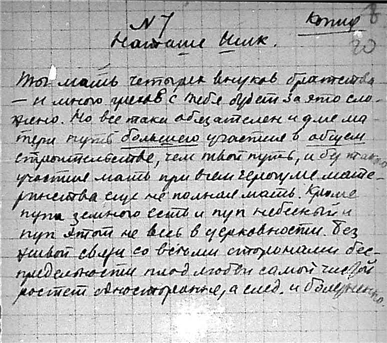 N 7 Копир 8
Наташе Ш 20
Ты мать четырех внуков братства
— и много грехов с тебя будет за это сло-
жено. Но все таки обязателен и для ма-
тери путь большего участия в общем
строительстве, чем твой путь, и без такого
участия мать при всем героизме мате-
ринства еще не полная мать. Кроме
пупа земного есть и пуп небесный и
пуп этот не весь в церковности. Без
живой связи со всеми сторонами бес-
предельности плод любви самой чистой
ростет односторонне, а след. и болезненно.